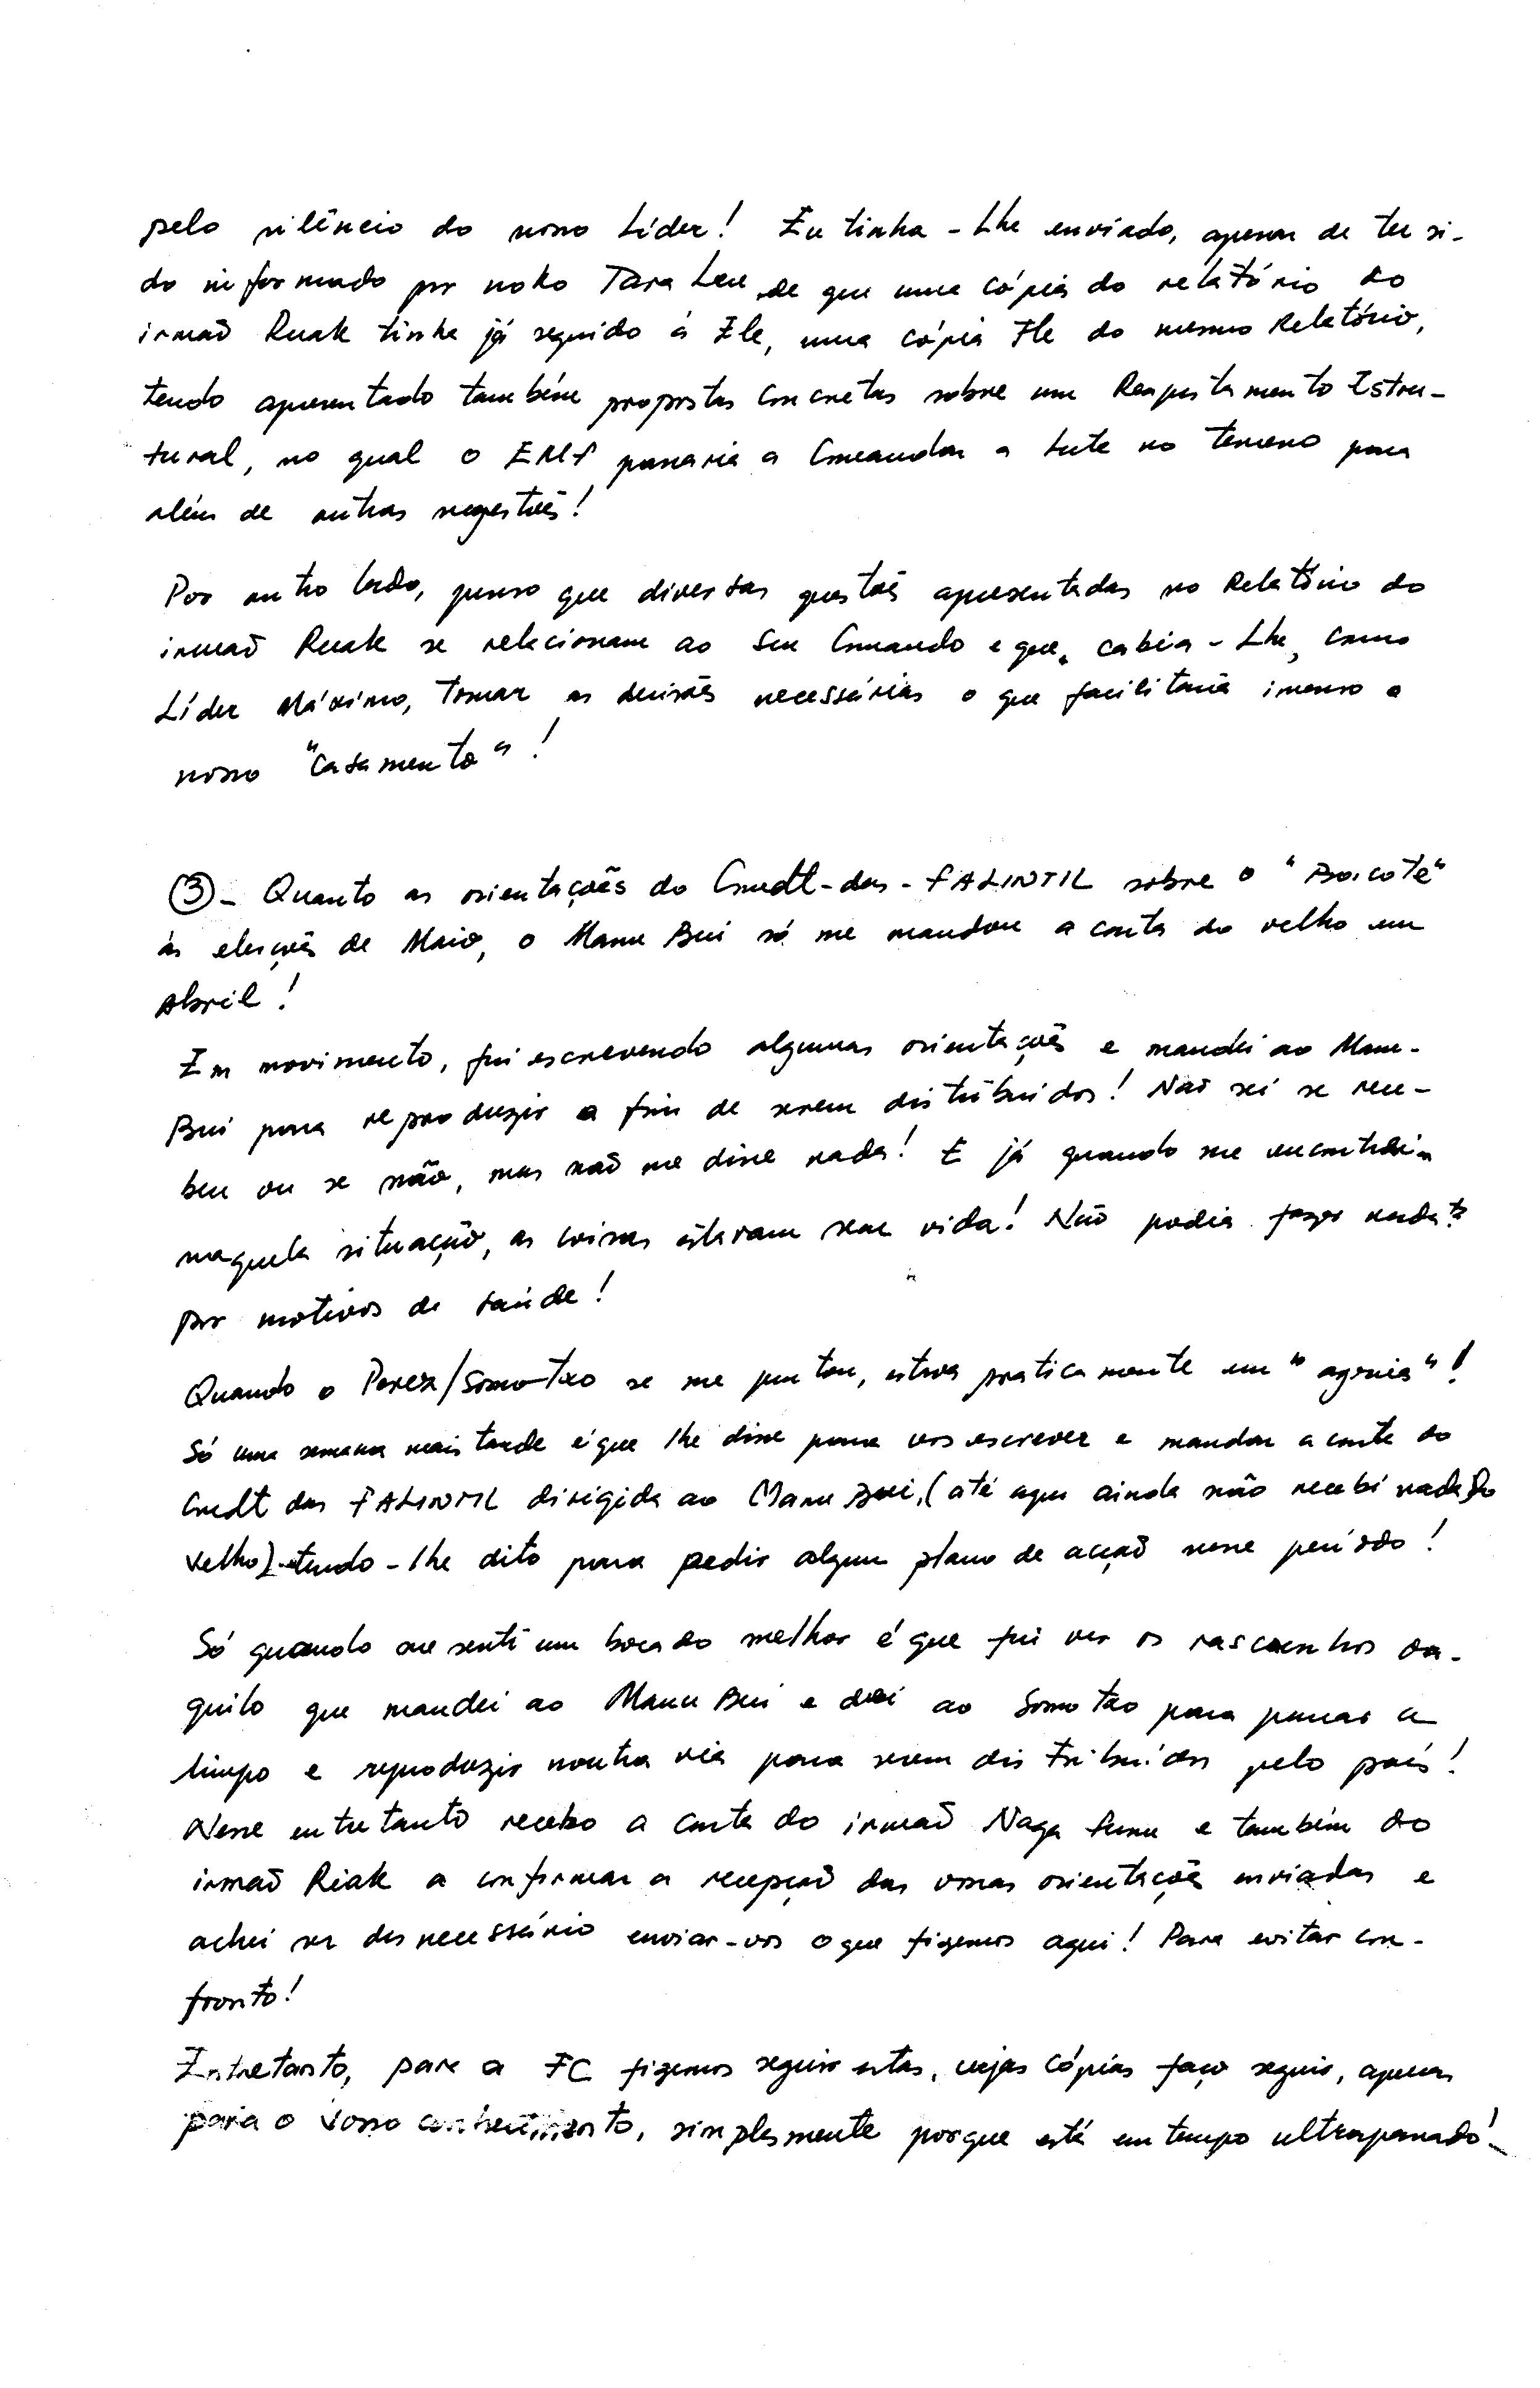 pelo silêncio do nosso Líder! Eu tinha-Lhe enviado, apesar de ter si-
do informado por noko Tara Leu de que uma cópia do relatório do
irmaõ Ruak tinha já seguido á Ele, uma cópia Ele do mesmo Relatório,
tendo apresentado também propostas concretas sobre um Reajustamento Estru-
tural, no qual o EMF passaria a Comandar a Luta no terreno para
além de outras sugestoẽs!
Por outro lado, penso que diversas questoẽs apresentadas no Relatório do
irmaõ Ruak se relacionam ao Seu Comando e que, cabia-Lhe, como
Líder Máximo, Tomar as decisoẽs necessárias o que facilitaria imenso o
nosso "Casamento"!
③- Quanto as orientaçoẽs do Cmdt-das-FALINTIL sobre o "Boicote"
ás eleiçoẽs de Maio, o Manu Bui só me mandou a carta do velho em
Abril!
Em movimento, fui escrevendo algumas orientaçoẽs e mandei ao Manu-
Bui para reproduzir a fim de serem distribuidos! Naõ sei se rece-
beu ou se não, mas naõ me disse nada! E já quando me encontrei
naquela situação, as coisas estavam sem vida! Não podia fazer nada
por motivos de saúde!
Quando o Perex/Somotxo se me juntou, estava praticamente em "agonia"!
Só uma semana mais tarde é que lhe disse para vos escrever e mandar a carta do
Cmdt das FALINTIL dirigida ao Manu Bui, (até aqui ainda não recebi nada do
velho) tendo-lhe dito para pedir algum plano de acçaõ nesse período!
Só quando me senti um bocado melhor é que fui ver os rascunhos da-
quilo que mandei ao Manu Bui e dei ao Somotxo para passar a
limpo e reproduzir noutra via para serem distribuídos pelo país!
Nesse entretanto recebo a carta do irmaõ Naga Sunu e também do
irmaõ Riak a confirmar a recepçaõ das vossas orientaçoẽs enviadas e
achei ser desnecessário enviar-vos o que fizemos aqui! Para evitar con-
fronto!
Entretanto, para a FC fizemos seguir estas, cujas cópias faço seguir, apenas
para o vosso conhecimento, simplesmente porque está em tempo ultrapassado!